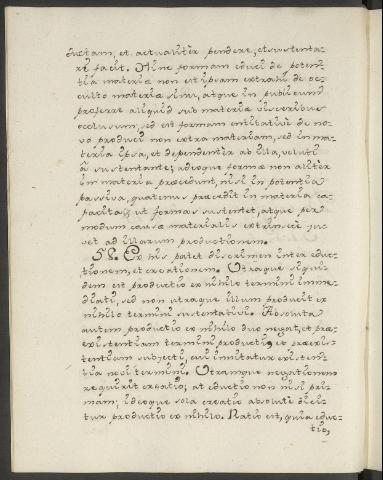 ductam, et actualiter pendere, et sustenta-
ri facit. Unde formam educi de poten-
tia materiæ non est ipsam extrahi de oc-
culto materiæ sinu, atque in publicum
proferre aliquid sub materiæ visceribus
occlusum, sed est formam entitative de no-
vo produci non extra materiam, sed in ma-
teria ipsa, et dependenter ab illa, veluti
à sustentante; adeoque formæ non aliter
in materia præcedunt, nisi in potentia
passiva, quatenus præcedit in materia ca-
pacitas, ut formas sustentet, atque per
modum causæ materialis extrinsece ju-
vet ad illarum productionem.
58. Ex his patet discrimen inter educ-
tionem, et creationem. Utraque siqui-
dem est productio ex nihilo termini imme-
diati, sed non utraque illum producit ex
nihilo termini sustentativi. Absoluta
autem productio ex nihilo duo negat, et præ-
existentiam termini producti, et præexis-
tentiam subjecti, cui innitatur existen-
tia novi termini. Utramque negationem
requirit creatio; at eductio non nisi pri-
mam; ideoque sola creatio absolute dici-
tur productio ex nihilo. Ratio est, quia educ-
tio,